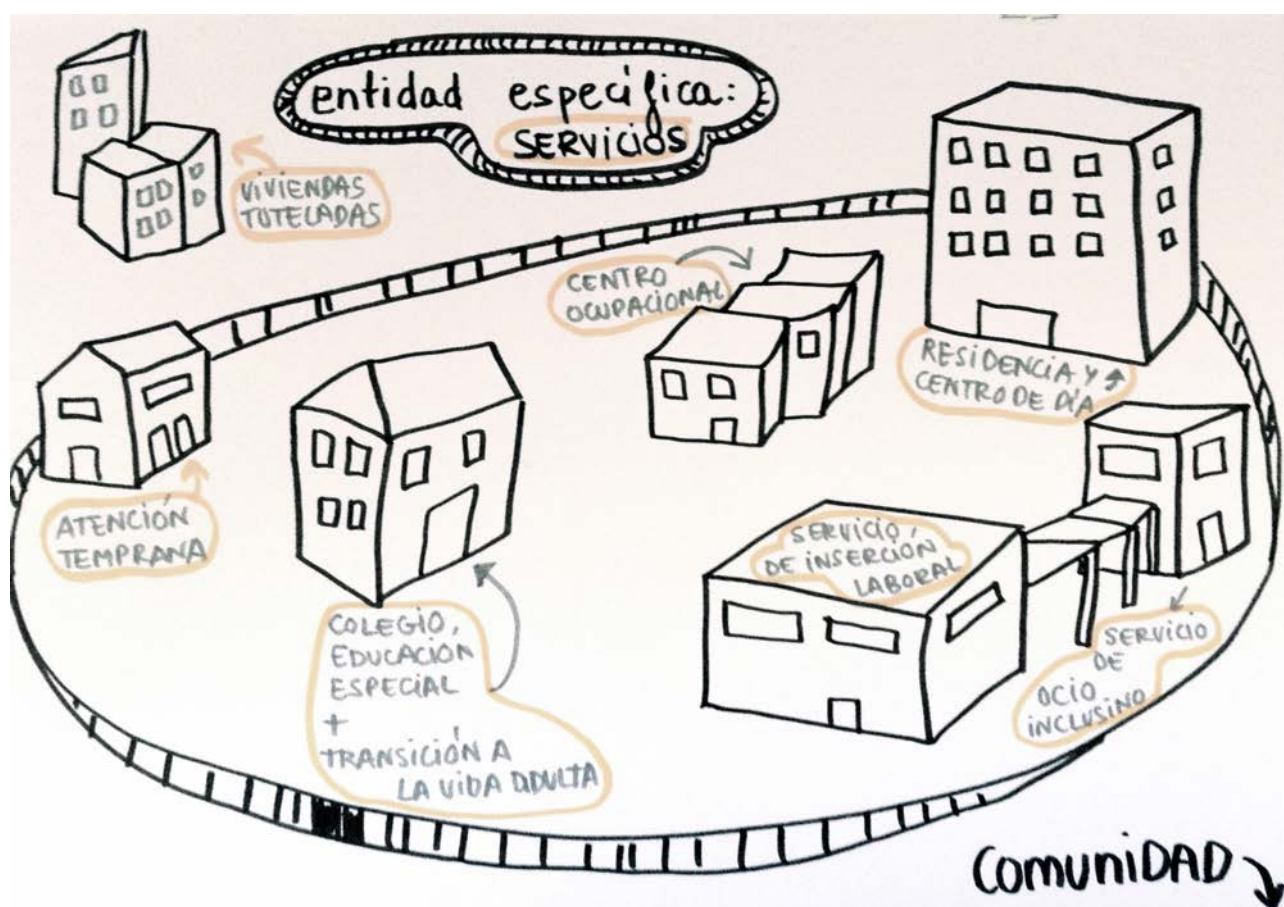 entidad específica:
SERVICIOS
VIVIENDAS
TUTELADAS
CENTRO
OCUPACIONAL
RESIDENCIA Y
CENTRO DE DÍA
ATENCIÓN
TEMPRANA
COLEGIO,
EDUCACIÓN
ESPECIAL
+
TRANSICIÓN A
LA VIDA ADULTA
SERVICIO
DE INSERCIÓN
LABORAL
SERVICIO
DE
OCIO
INCLUSINO
COMUNIDAD